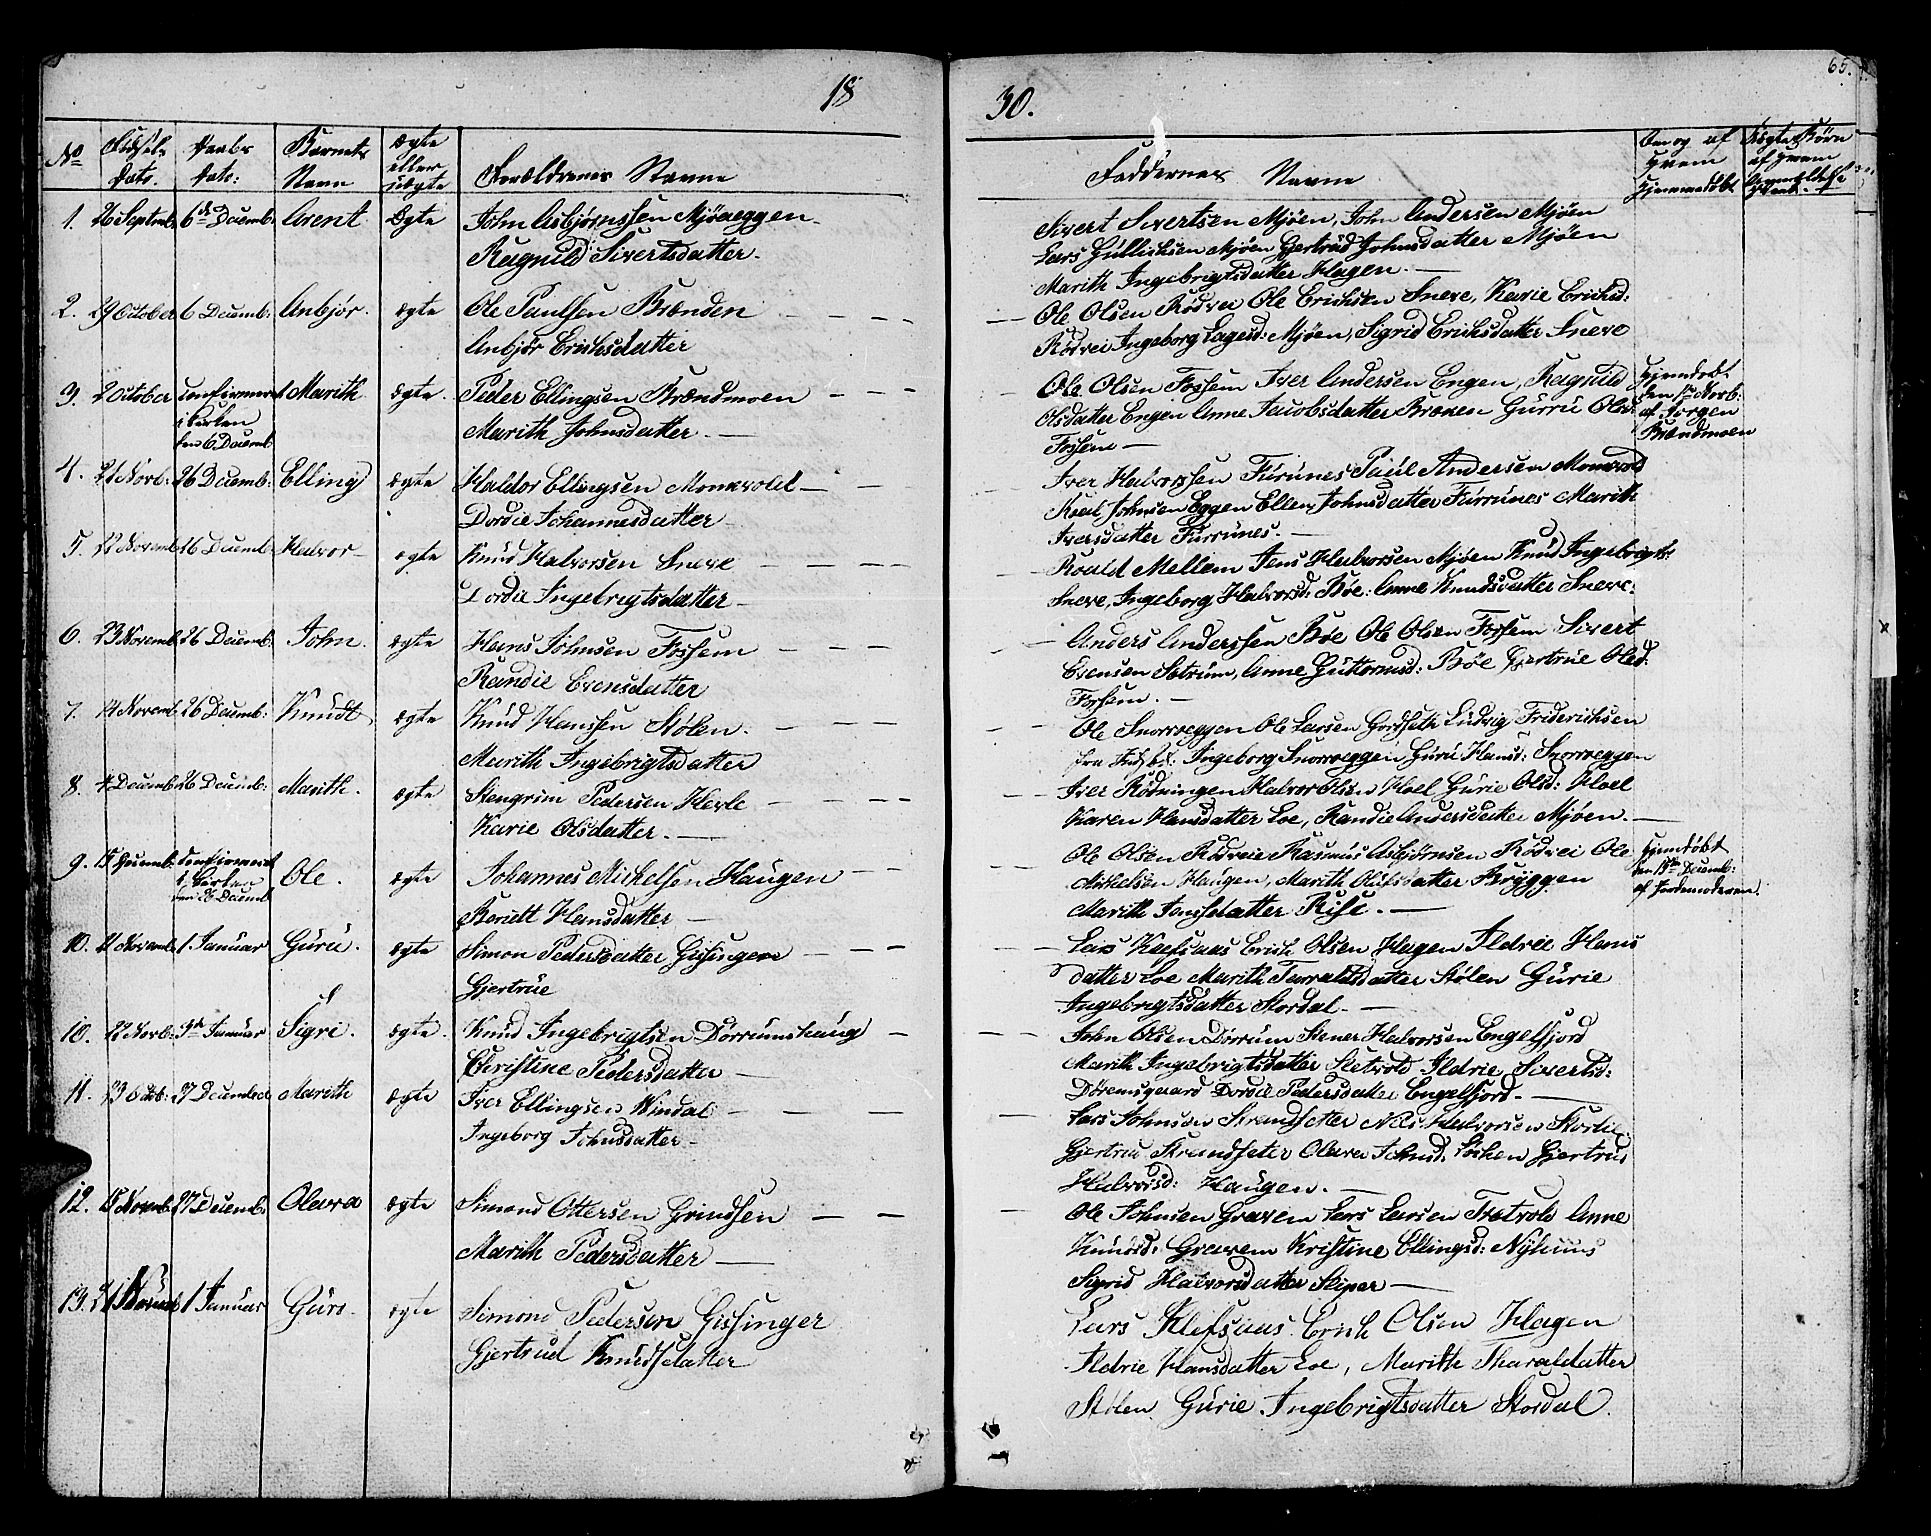 18
30.
65.
No
Fødsels Dato.
Daabs Dato:
Barnets Navn
Ægte eller uægte
Forældrenes Navne
Faddernes Navne
Om og af Hvem Hjemmedøbt
Uægte Børn af Hvem
1. 26 Septmb: 6de Decemb: Arent. Ægte John Asbjørnssen Mjøaeggen
Ragnild Sivertsdatter.
Sivert Sivertsen Mjøen, John Andersen Mjøen
Lars Gullichsen Mjøen Gjertrud Johnsdatter Mjøen
Marith Ingebrigtsdatter Hagen.
2. 29 October 6 Decemb: Anbjør. ægte Ole Paulsen Brænden
Anbjør Erichsdatter
Ole Olsen Rødvei Ole Erichsen Sneve, Karie Erichsd:
Rødvei Ingeborg Lagesd: Mjøen, Sigrid Erichsdatter Sneve
3. 2 October Confirmeret i Kirken den 6 Decemb Marith ægte. Peder Ellingsen Brændmoen
Marith Johnsdatter.
Ole Olsen Fossem Iver Andersen Engen, Ragnild
Olsdatter Engen Anne Jacobsdatter Brænen Gurru Olsd:
Fossem
Hjemdøbt den 1te Novb: af Jørgen Brændmoen
4. 21 Novb: 26 Decemb: Elling ægte Haldor Ellingsen Monsvold
Dordie Johannesdatter
Iver Halvorssen Furunes Paul Andersen Monsvold
Roal Johnsen Eggen Ellen Johnsdatter Furrunes Marith
Iversdatter Furrunes.
5. 22 Novemb 26 Decemb: Halvor ægte Knud Halvorsen Sneve
Dordie Ingebrigtsdatter
Roald Mellem Jens Halvorsen Mjøen Knud Ingebrigts:
Sneve, Ingeborg Halvorsd: Bøe: Anne Knudsdatter Sneve.
6. 23 Novemb 26 Decemb: John. ægte Hans Johnsen Fossem
Randie Evensdatter
Anders Anderssen Bøe Ole Olsen Fossem Sivert
Evensen Sætrum, Anne Guttormsd: Bøe Gjertrue Olsd:
Fossem.
7. 14 Novemb. 26 Decemb: Knudt ægte Knud Hanssen Stølen.
Marith Ingebrigtsdatter
Ole Snorroeggen Ole Larsen Gordseth Ludvig Friderichsen
fra Indsbd: Ingeborg Snorroeggen Guru Hansd: Snorroeggen
8. 4 Decemb 26 Decemb: Marith. ægte Stengrim Pedersen Hevle
Karie Olsdatter.
Iver Rødningen Halvor Olsen Hoel Gurie Olsd: Hoel
Karen Hansdatter Loe, Randie Andersdatter Mjøen.
9. 15 Decemb: Confirmeret i Kirken den 26 Decemb Ole. ægte Johannes Michelsen Haugen
Boridt Hansdatter
Ole Olsen Rødveie Rasmus Asbjørnsen Rødvei Ole
Michelsen Haugen, Marith Olufsdatter Bryggen
Marith Jonsdatter Rise.
Hjemdøbt den 15de Decemb: af Jordemoderen.
10. 21 Novemb: 1. Januar Guru. ægte Simon Pedersdatter Gissinger
Gjertrue
Lars Klefsaas Erich Olsen Hagen Ildrie Hans
datter Loe Marith Taraldsdatter Stølen Gurie
Ingebrigtsdatter Stordal.
10. 22 Novb: 9de Januar Sigri. ægte. Knud Ingebrigtsen Dørrumshaug
Christine Pedersdatter
John Olsen Dørrum Stener Halvorsen Engelsfjord
Marith Ingebrigtsdatter Sletvold Ildrie Sivertsd:
Døremsgaard Dordie Pedersdatter Engelfjord.
11. 23 Octb: 27 Decembr Marith ægte Iver Ellingsen Vindal
Ingeborg Johnsdatter
Lars Johnson Strandsetter Nils Halvorsen Storlie
Gjertrue Strandseter Olava Johnsd: Løchen Gjertrud
Halvorsd: Haugen.
12. 15 Novemb 27 Decemb: Olava ægte Simond Ottersen Grindsen
Marith Pedersdatter
Ole Johnsen Gravem Lars Larsen Tretvold Anne
Knudsd: Gravem Kristine Ellingsd: Nyhuus
Sigrid Halvorsdatter Skiper
13. 21 Novemb 1 Januar Guro. ægte Simond Pedersen Gissinger
Gjertrud Knudsdatter
Lars Klefsaas Erich Olsen Hagen
Ildrie Hansdatter Loe, Marith Tharaldatter
Stølen Gurie Ingebrigtsdatter Stordal.